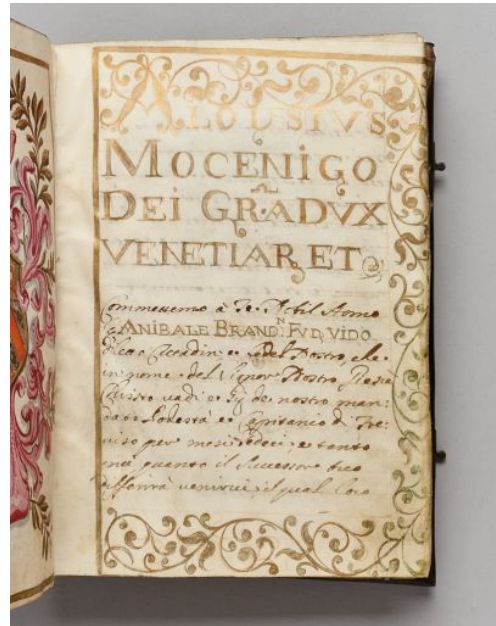 ALOUSIVS
MOCENIGO
DEI GRA DVX
VENETIAR, ET
Commettemo à Te Nobil Homo
ANIBALE BRAND.N FV D, VIDO
Cittadin e Fedel Nostro, che
in nome del Signor Nostro Giesù
Christo vadi e de nostro man:
dato Podestà e Capitanio di Tre:
viso per mesi sedeci e tanto
più quanto il Successore tuo
differirà venirvi, il qual loco